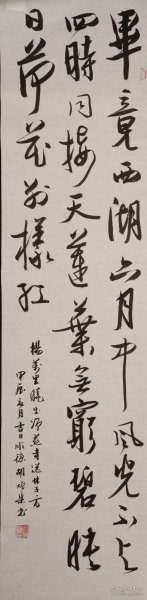 畢竟西湖六月中風光不與
四時同接天蓮葉無窮碧映
日荷花別樣紅
楊萬里曉出淨慈寺送林子方